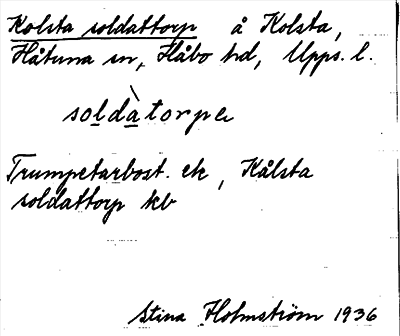 Kolsta soldattorp å Kolsta,
Håtuna sn, Håbo hd, Upps. l.
soldàtorpe
Trumpetarbost. ek, Kålsta
soldattorp kb
Stina Holmström 1936